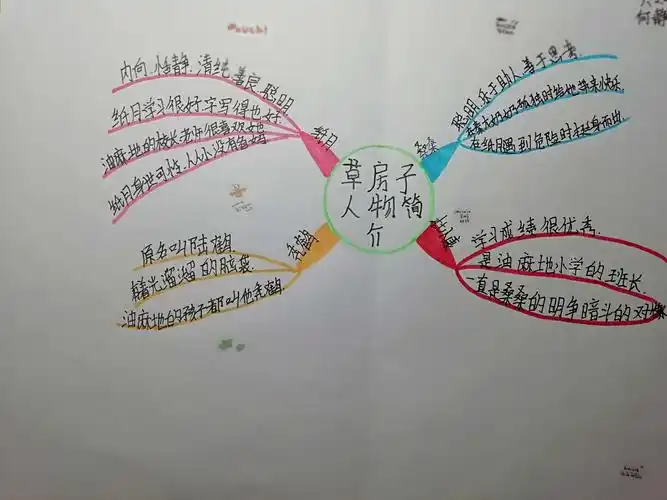 草房子
人物简
介
纸月
内向、恬静、清纯、善良、聪明
纸月学习很好,字写得也好
油麻地的校长老师很喜欢她
纸月身世可怜,从小没有爸妈
桑桑
聪明、乐于助人、善于思考
在纸月遇到危险时挺身而出
秃鹤
原名叫陆鹤
精光溜溜的脑袋
油麻地的孩子都叫他秃鹤
学习成绩很优秀
是油麻地小学的班长
一直是桑桑的明争暗斗的对